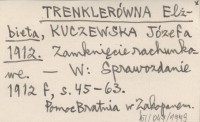 TRENKLERÓWNA Elż-
bieta, KUCZEWSKA Józefa
1912. Zamknięcie rachunko
we. — W: Sprawozdanie
1912 f, s. 45-63.
Pomoc Bratnia w Zakopanem.